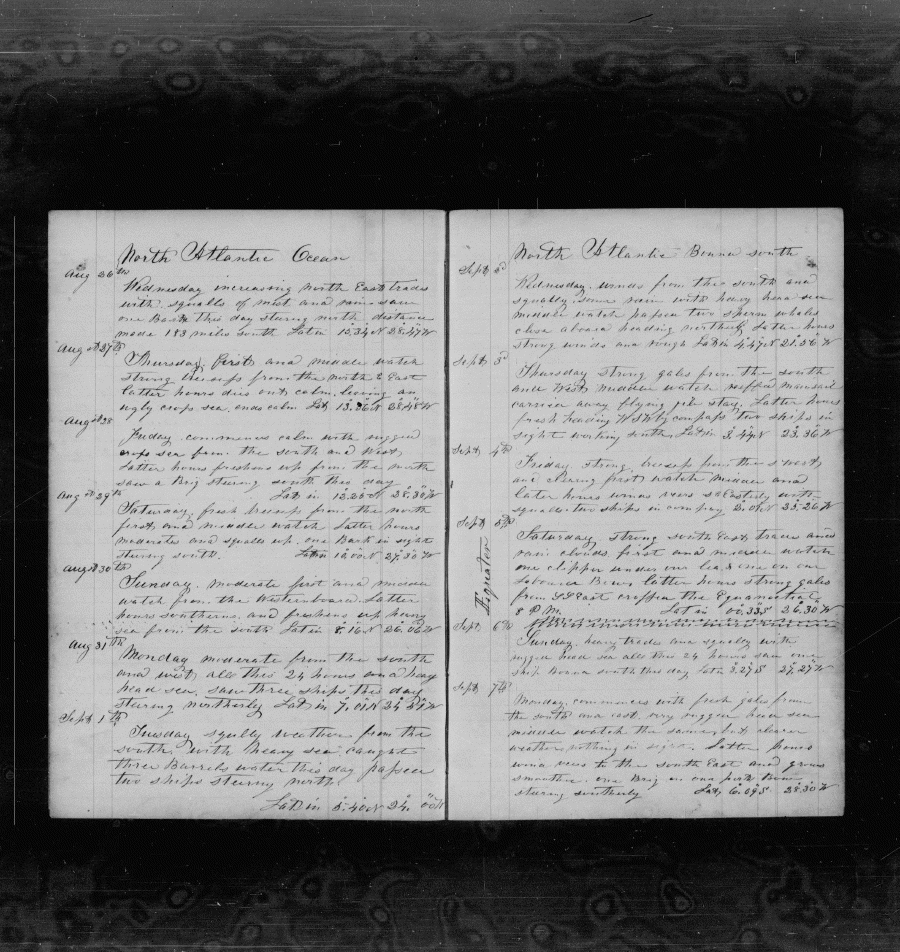 North Atlantic Ocean
Aug 26th
Wednesday increasing North East trades
with squalls of mist and rain saw
one Bark this day sturing north distance
made 183 miles south Lat in 15.34 N 28.47 W
August 27th
Thursday, first and middle watch
strong breesep from the north & East
latter hours dies out calm, leaving an
ugly crops sea, ends calm Lat 13.26 N 28.48 W
August 28
Friday commences calm with rugged
crops sea from the south and West,
Latter hours freshens up from the north
saw a Brig sturing south this day
Lat in 12.25 N 28.30 W
Aug st 29th
Saturday, fresh breesep from the north
first, and middle watch Latter hours
moderates and squalls up, one Bark in sight
sturing south. Lat in 10.00 N 27.30 W
August 30th
Sunday, moderate first and middle
watch from the Western board Latter
hours southerns, and freshens up heavy
sea from the south Lat in 8.16 N 26.06 W
Aug 31st
Monday moderate from the south
and west, all this 24 hours and heavy
head sea, saw three ships this day
sturing northerly Lat in 7.01 N
Sept. 1th
Tuesday sqully weather from the
south, with heavy sea caught
three Barrels water this day papsed
two ships sturing north.
Lat in 5.40 N 24.00 W
North Atlantic Bound south
Sept 2d
Wednesday winds from the south and
squally some rain with heavy head sea
middle watch papsed two sperm whales
close aboard heading northerly Latter hours
strong winds and rough Lat in 4.47 N 21.56 W
Sept 3d
Thursday strong gales from the south
and West, middle watch reeffed mainsail
carried away flying jib stay. Latter hours
fresh heading W S W by compass two ships in
sight working south, Lat in 3.44 N 23.36 W
Sept 4th
Friday strong breesep from the s west,
and clearing first watch middle and
later hours winds vers S Easterly with
squalls, two ships in company 2.09 N 25.26 W
Sept 5th
Saturday strong south East, trades and
rain clouds first and middle watch
one clipper under our lea & one on our
Labourd Bow, latter hours strong gales
from S S East cropsed the Equanoctial
8 P.M. Lat in 00.33 S 26.30 W
Equator
Sept 6th
Sunday, heavy trades and squally with
rugged head sea all this 24 hours saw one
ship bound south this day Lat in 3.27 S 27.27 W
Sept 7th
Monday, commences with fresh gales from
the south and east, very rugged head sea
middle watch the same, but clearer
weather, nothing in sight. Latter hours
wind vers to the south East and grows
smoother. one Brig on our port bow
sturing southerly Lat, 6.09 S 28.30 W